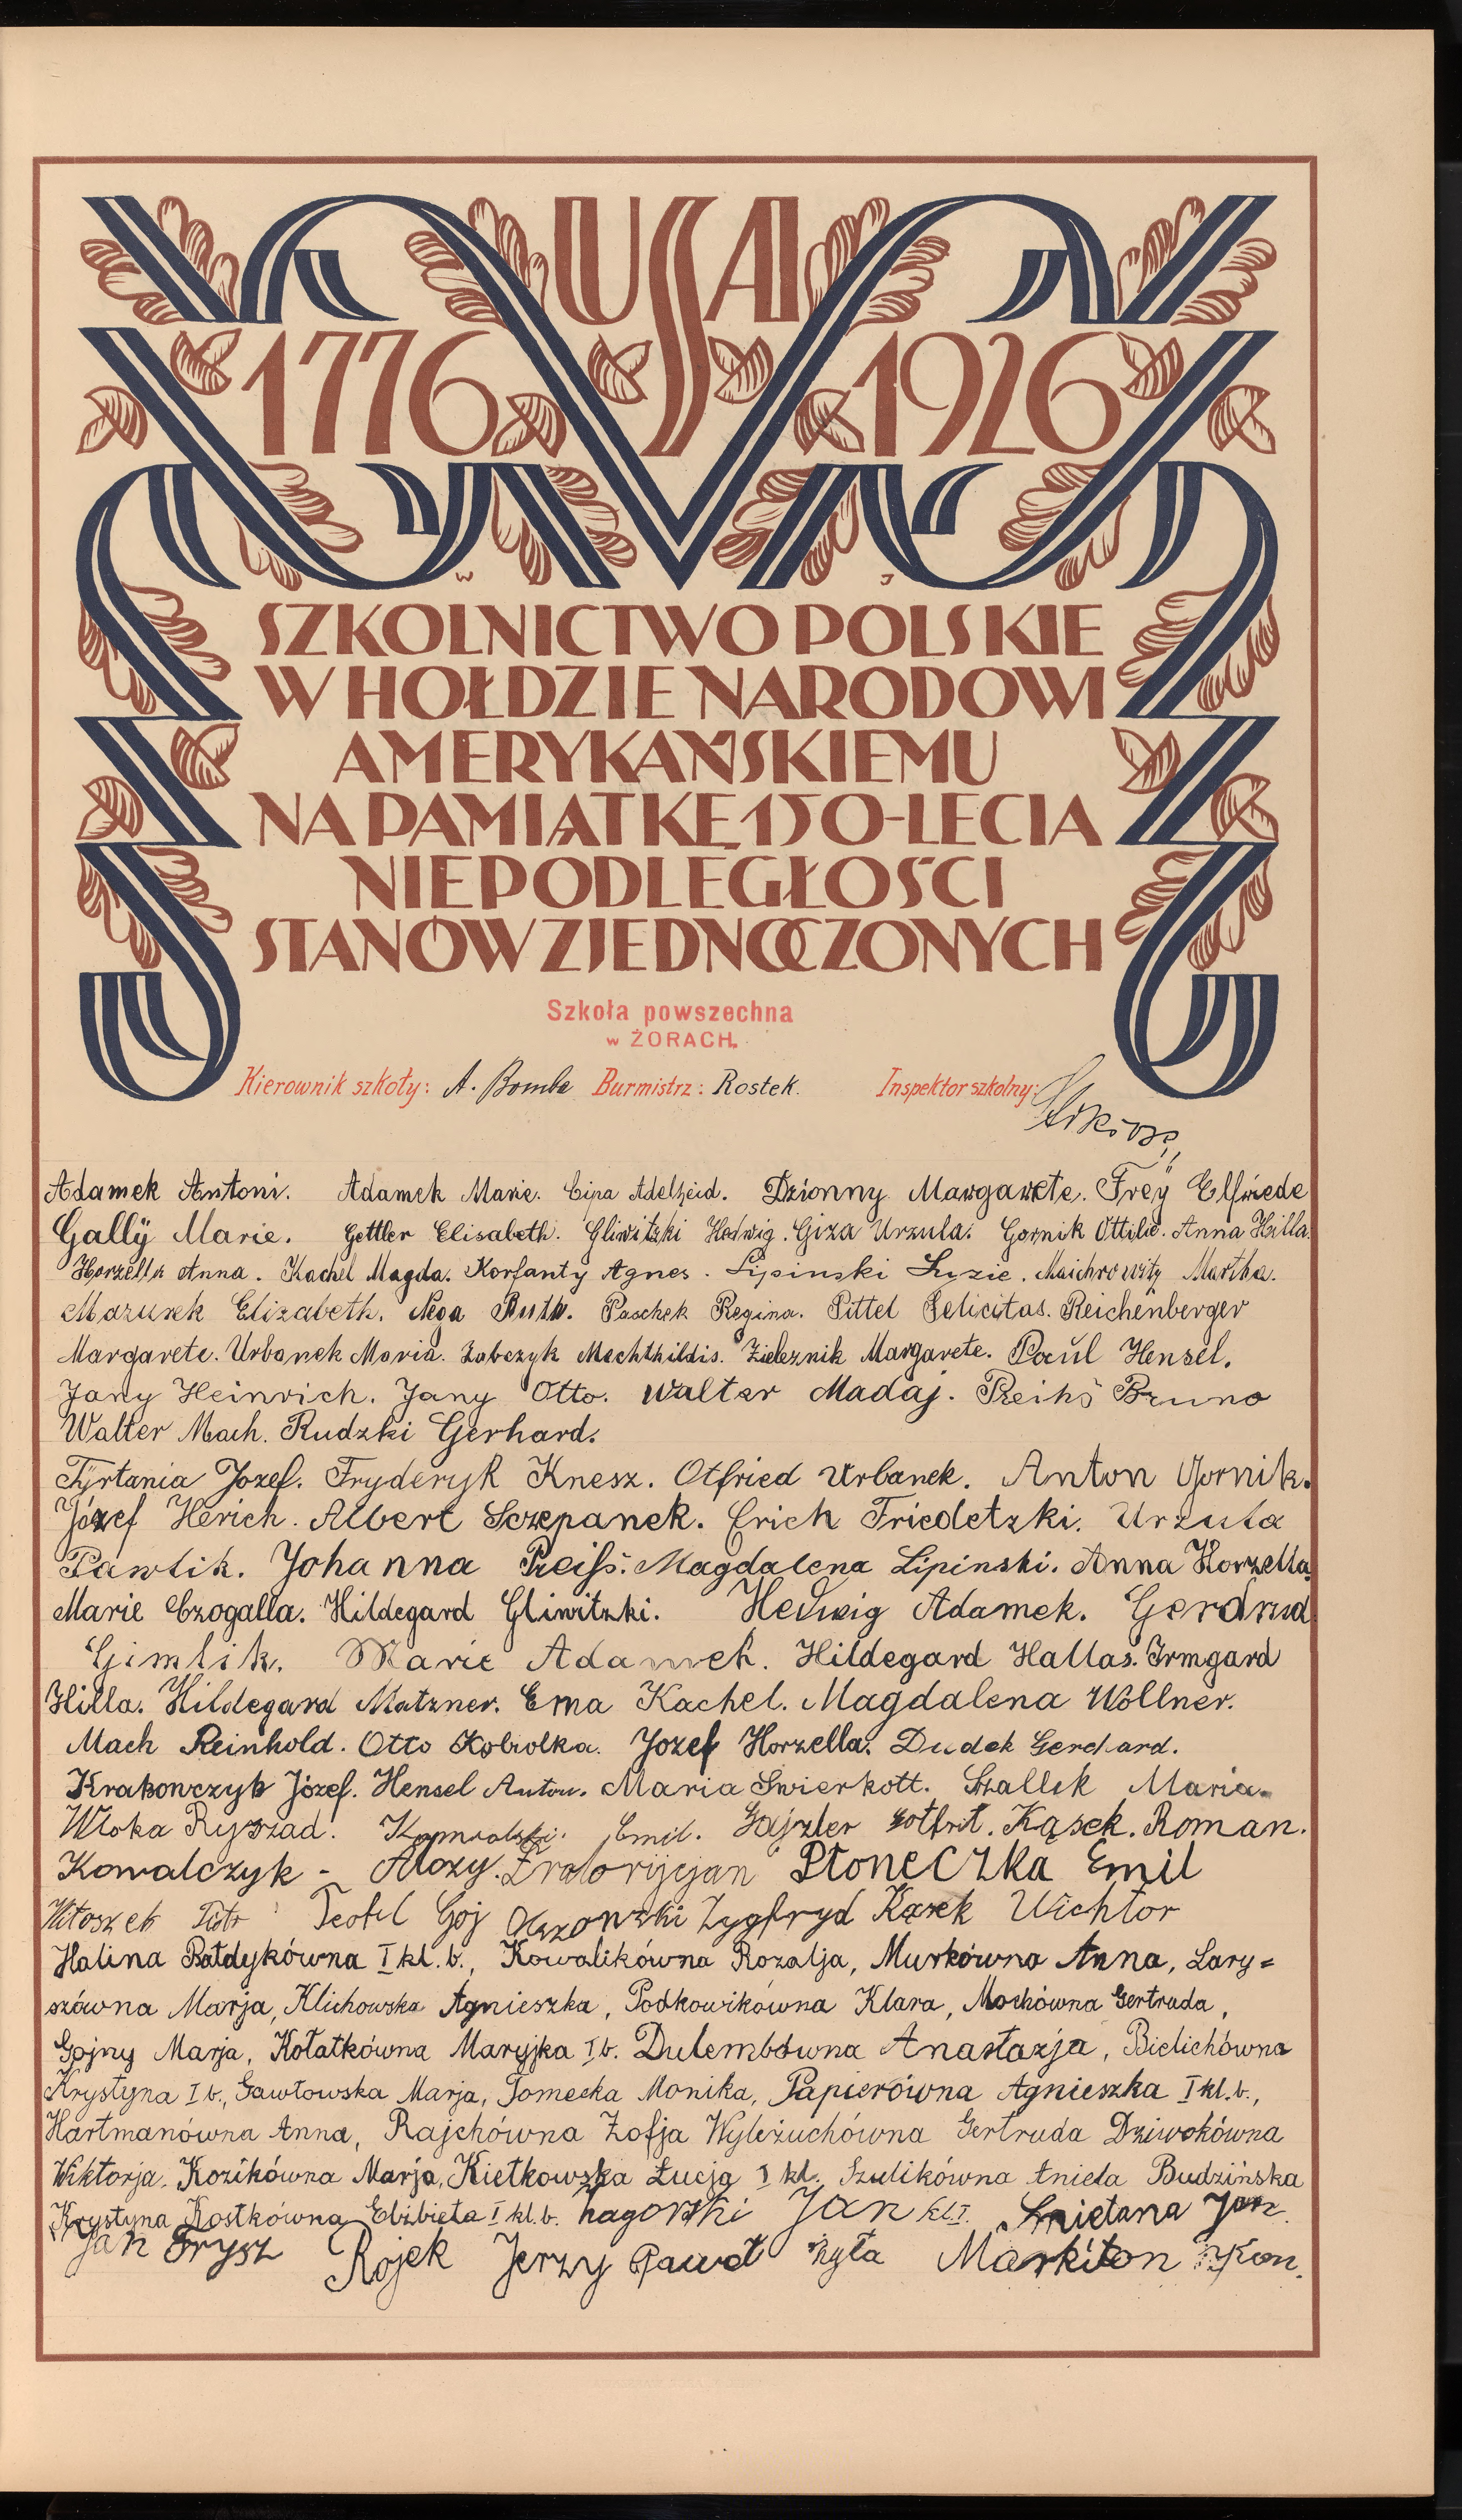 USA
1776 1926
W J
SZKOLNICTWO POLSKIE
W HOŁDZIE NARODOWI
AMERYKAŃSKIEMU
NA PAMIĄTKĘ 150-LECIA
NIEPODLEGŁOŚCI
STANÓW ZJEDNOCZONYCH
Szkoła powszechna
w ŻORACH.
Kierownik szkoły: A. Bomba Burmistrz: Rostek. Inspektor szkolny:
Adamek Antoni. Adamek Marie. Cipa Adelheid. Dzionny Margarete. Frey Elfriede
Gallÿ Marie. Gettler Elisabeth. Gliwitzki Hedwig. Giza Urzula. Gornik Ottilie. Anna Hilla.
Horzella Anna. Kachel Magda. Korfanty Agnes. Lipinski Luzie. Maichrowitz Martha.
Mazurek Elizabeth. Nega Ruth. Paschek Regina. Pittel Felicitas. Reichenberger
Margarete. Urbanek Maria. Zabczyk Mechthildis. Zieleznik Margarete. Paul Hensel.
Jany Heinrich. Jany Otto. Walter Madaj. Preihs Bruno
Walter Mach. Rudzki Gerhard.
Tyrtania Jozef. Fryderyk Knesz. Otfried Urbanek. Anton Gornik.
Józef Herich. Albert Sczepanek. Erich Friedetzki. Urzula
Pawlik. Johanna Preiss. Magdalena Lipinski. Anna Horzella
Marie Czogalla. Hildegard Gliwitzki. Hedwig Adamek. Gerdrud
Gimlik. Marie Adamek. Hildegard Hallas. Irmgard
Hilla. Hildegard Matzner. Erna Kachel. Magdalena Wollner.
Mach Reinhold. Otto Kobiolka. Jozef Horzella. Dudek Gerhard.
Krakowczyk Józef. Hensel Anton. Maria Swierkott. Szallek Maria.
Wloka Ryszad. Emil. Gajzler Gotfrit. Kąsek. Roman.
Kowalczyk - Alozy. Płoneczka Emil
Piotr Teofil Goj Olszowski Zygfryd Kąsek Wichtor
Halina Bałdykówna I kl. b., Kowalikówna Rozalja, Murkówna Anna, Lary=
szówna Marja, Klichowska Agnieszka, Podkowikówna Klara, Mochówna Gertruda,
Gojny Marja, Kołatkówna Maryjka I b. Dulembówna Anastazja, Bielichówna
Krystyna I b., Gawłowska Marja, Tomecka Monika, Papierówna Agnieszka I kl. b.,
Hartmanówna Anna, Rajchówna Zofja Wyleżuchówna Gertruda Dziwokówna
Wiktorja. Kozikówna Marja, Kietkowska Łucja I kl. Szulikówna Aniela Budzińska
Krystyna Kostkówna Elżbieta I kl. b. Nagorski Jan kl I. Smietana Jan.
Jan Frysz Rojek Jerzy Paweł Żyła Markiton